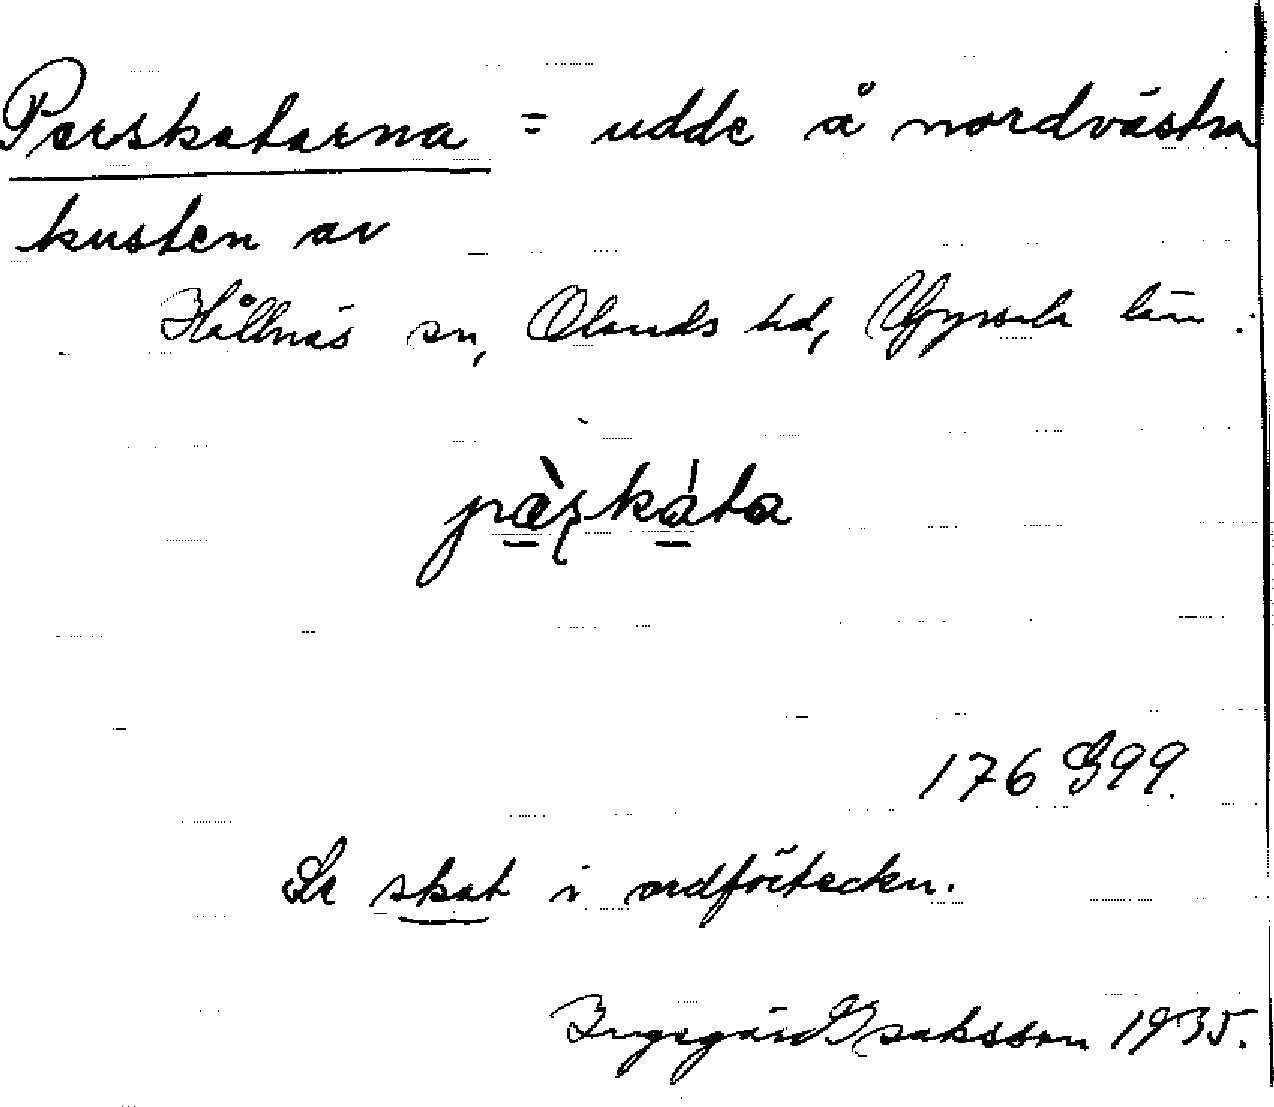 Perskatarna = udde å nordvästra
kusten av
Hållnäs sn, Olands hd, Uppsala län.
pàṣkáta
176 G99.
Se skat i ordförteckn.
Ingegärd Isaksson 1935.